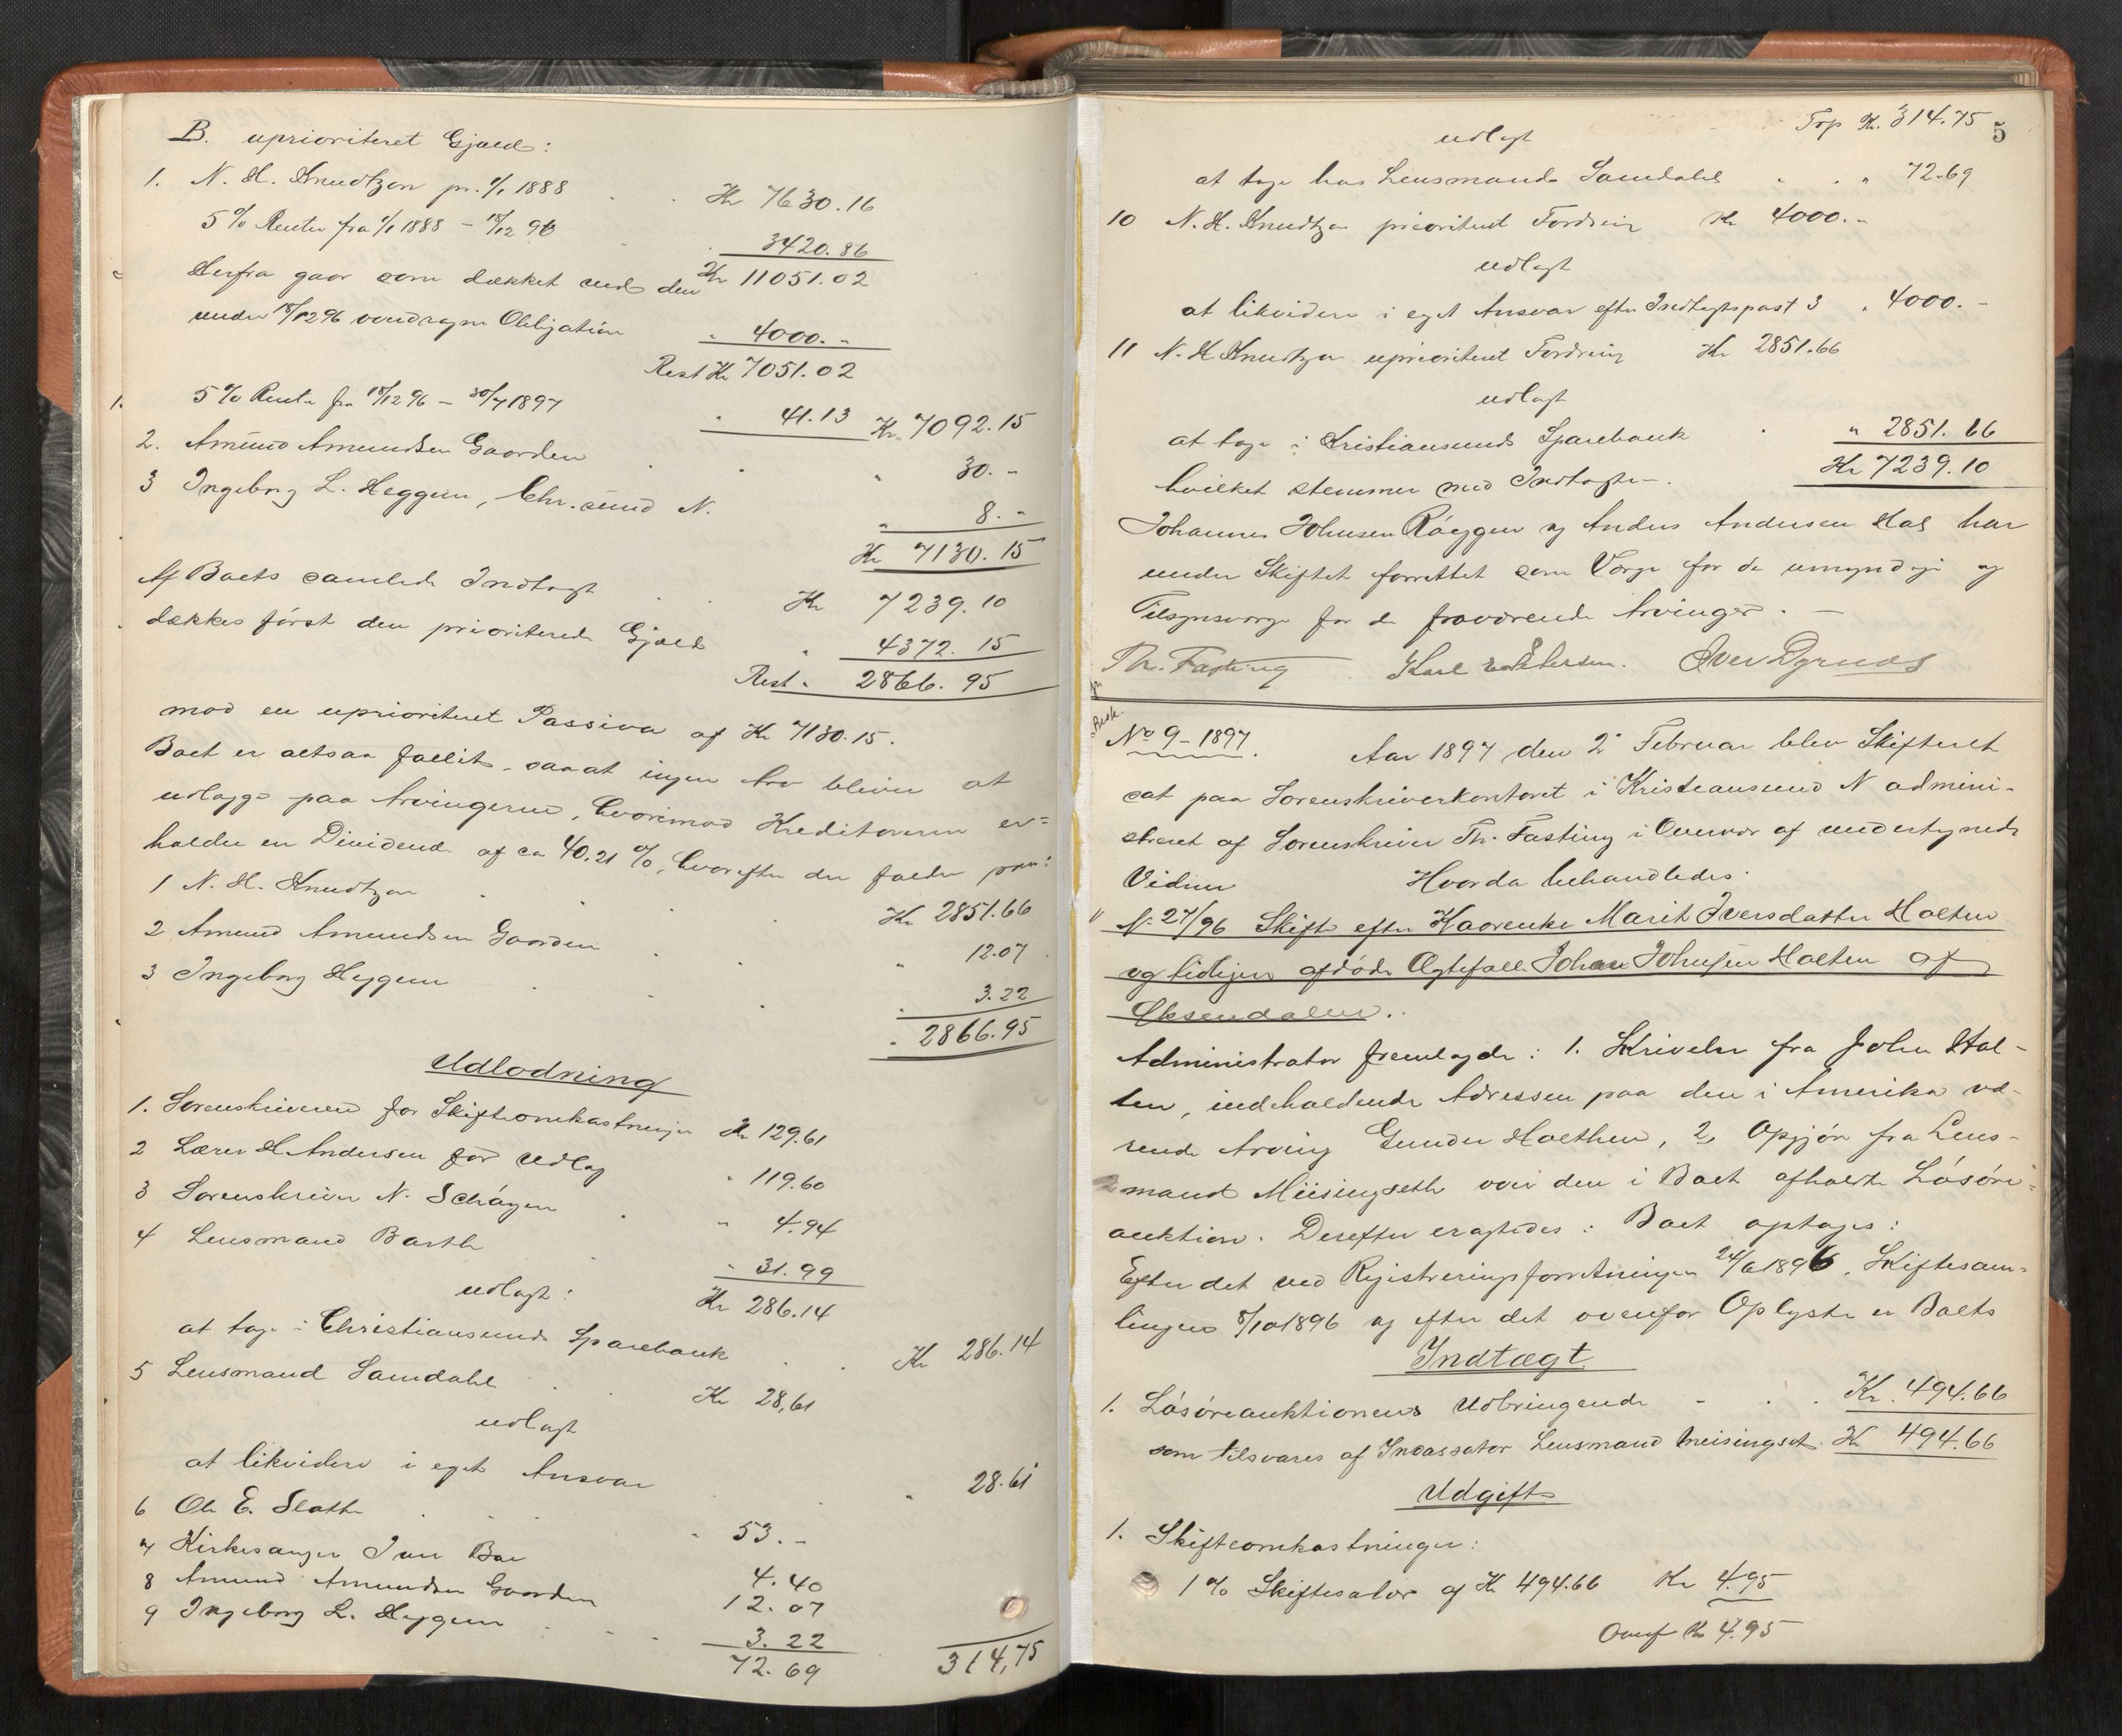 B. uprioriteret Gjæld:
1. N. H. Knudtzon pr. 1/1 1888 Kr 7630.16
5 % Renter fra 1/1 1888 - 18/12 96 3420.86
Kr 11051.02
Herfra gaar som dækket ved den
under 18/12 96 vedtagne Obligation " 4000.-
Rest Kr 7051.02
5 % Rente fra 18/12 96 - 30/1 1897 " 41.13 Kr. 7092.15
2. Amund Amundsen Gaarden " 30.-
3 Ingeborg L. Heggem, Chr.sund N. " 8.-
Kr 7130.15
Af Boets samlede Indtægt Kr 7239.10
dækkes først den prioriterede Gjæld " 4372.15
Rest " 2866.95
mod en uprioriteret Passiva af Kr 7130.15.
Boet er altsaa fallit, saaat ingen Arv bliver at
udlægge paa Arvingerne, hvorimod Kreditorerne er=
holder en Dividende af ca 40.21 %, hvorefter der falder paa:
1 N. H. Knudtzon Kr 2851.66
2 Amund Amundsen Gaarden " 12.07
3 Ingeborg Heggem " 3.22
" 2866.95
Udlodning
1. Sorenskriveren for Skifteomkostninger Kr 129.61
2 Lærer H Andersen for Udlæg " 119.60
3 Sorenskriver N. Schøyen " 4.94
4 Lensmand Barth " 31.99
udlagt: Kr 286.14
at tage i Christiansunds Sparebank Kr 286.14
5 Lensmand Samdahl Kr 28,61
udlagt
at likvidere i eget Ansvar " 28.61
6 Ole E. Slatte " 53.-
7 Kirkesanger Iver Boe 4.40
8 Amund Amundsen Gaarden 12.07
9 Ingeborg L. Heggem 3.22
72.69 314,75
Trp Kr. 314.75 5
udlagt
at tage hos Lensmand Samdahl " 72.69
10 N. H. Knudtzon prioriteret Fordring Kr 4000.-
udlagt
at likvidere i eget Ansvar efter Indtægtspost 3 " 4000.-
11 N. H Knudtzon uprioriteret Fordring Kr 2851.66
udlagt
at tage i Kristiansunds Sparebank " 2851.66
Kr 7239.10
hvilket stemmer med Indtægten.
Johannes Johnsen Røeggen og Anders Andersen Hals har
under Skiftet forrettet som Værge for de umyndige og
Tilsynsværge for de fraværende Arvinger. -
Th. Fasting Karl Petersen. Iver Dyrnæs
No 9 - 1897. Aar 1897 den 2' Februar blev Skifteret
sat paa Sorenskriverkontoret i Kristiansund N admini-
streret af Sorenskriver Th. Fasting i Overvær af undertegnede
Vidner Hvorda behandledes:
N. 27/96 Skifte efter Kaarenke Marit Iversdatter Holten
og tidligere afdøde Ægtefælle Johan Johnsen Holten af
Øksendalen.
Administrator fremlagde: 1. Skrivelse fra John Hol-
ten, indeholdende Adressen paa den i Amerika væ-
rende Arving Gunder Holthen, 2, Opgjør fra Lens-
mand Meisingseth over den i Boet afholdte Løsøre-
auktion. Derefter eragtedes: Boet optages:
Efter det ved Registreringsforretningen 24/6 1896, Skiftesam-
lingen 8/10 1896 og efter det ovenfor Oplyste er Boets
Indtægt
1. Løsøreauktionens Udbringende Kr. 494.66
som tilsvares af Incassator Lensmand Meisingset. Kr 494.66
Udgift
1. Skifteomkostninger:
1 % Skifteafgift af Kr 494.66 Kr 4.95
Overf Kr 4.95